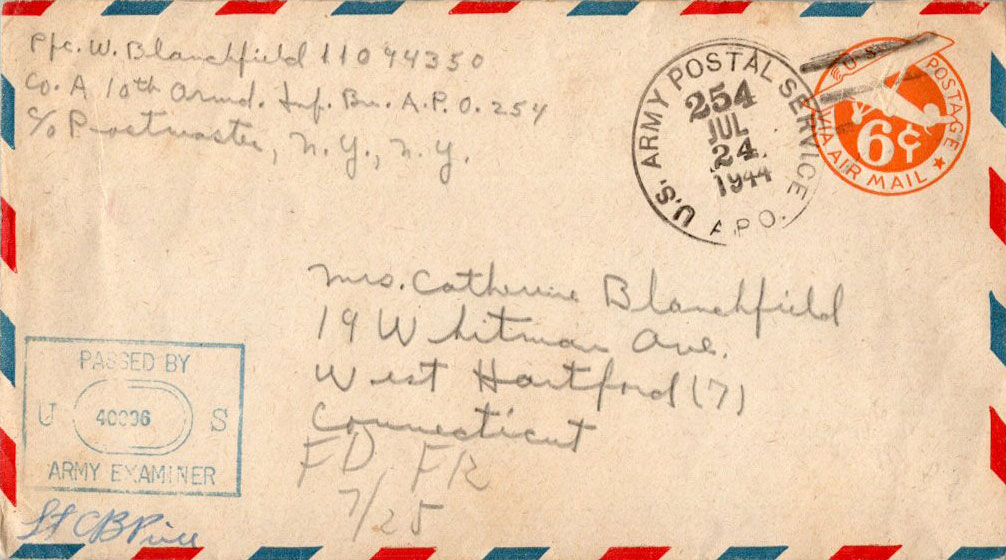 Pfc. W. Blanchfield 11094350
Co. A 10th Armd. Inf. Bn. A.P.O. 254
c/o Postmaster, N.Y., N.Y.
U.S. ARMY POSTAL SERVICE
254
JUL
24
1944
A.P.O.
U.S. POSTAGE
6¢
VIA AIR MAIL
Mrs. Catherine Blanchfield
19 Whitman Ave.
West Hartford (7)
Connecticut
FD, FR
7/25
PASSED BY
U S
ARMY EXAMINER
Lt CB